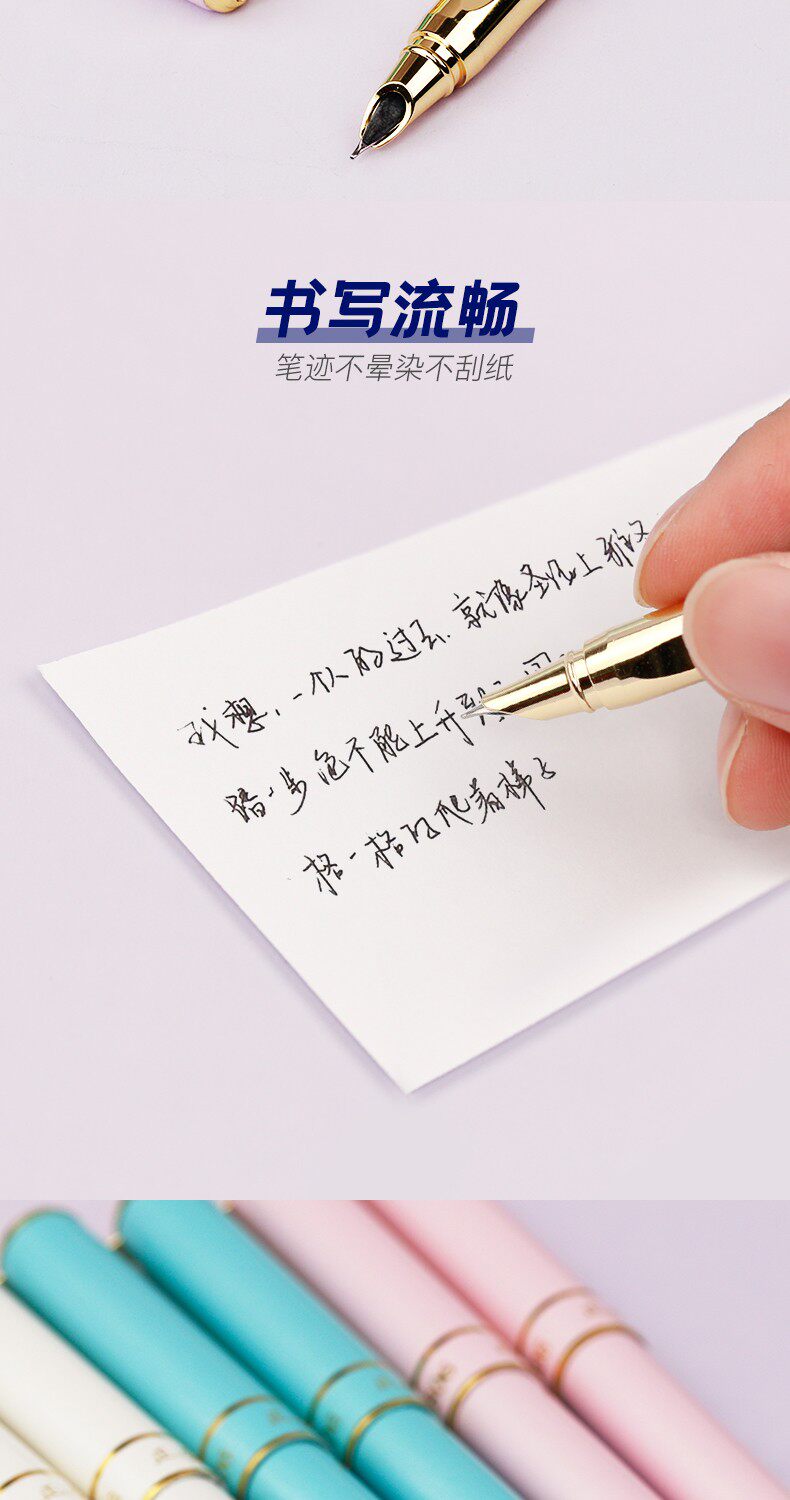 书写流畅
笔迹不晕染不刮纸
我想,一个人的过去,就像圣经上雅各
踏一步也不能上升到 间
格一格的爬着梯子